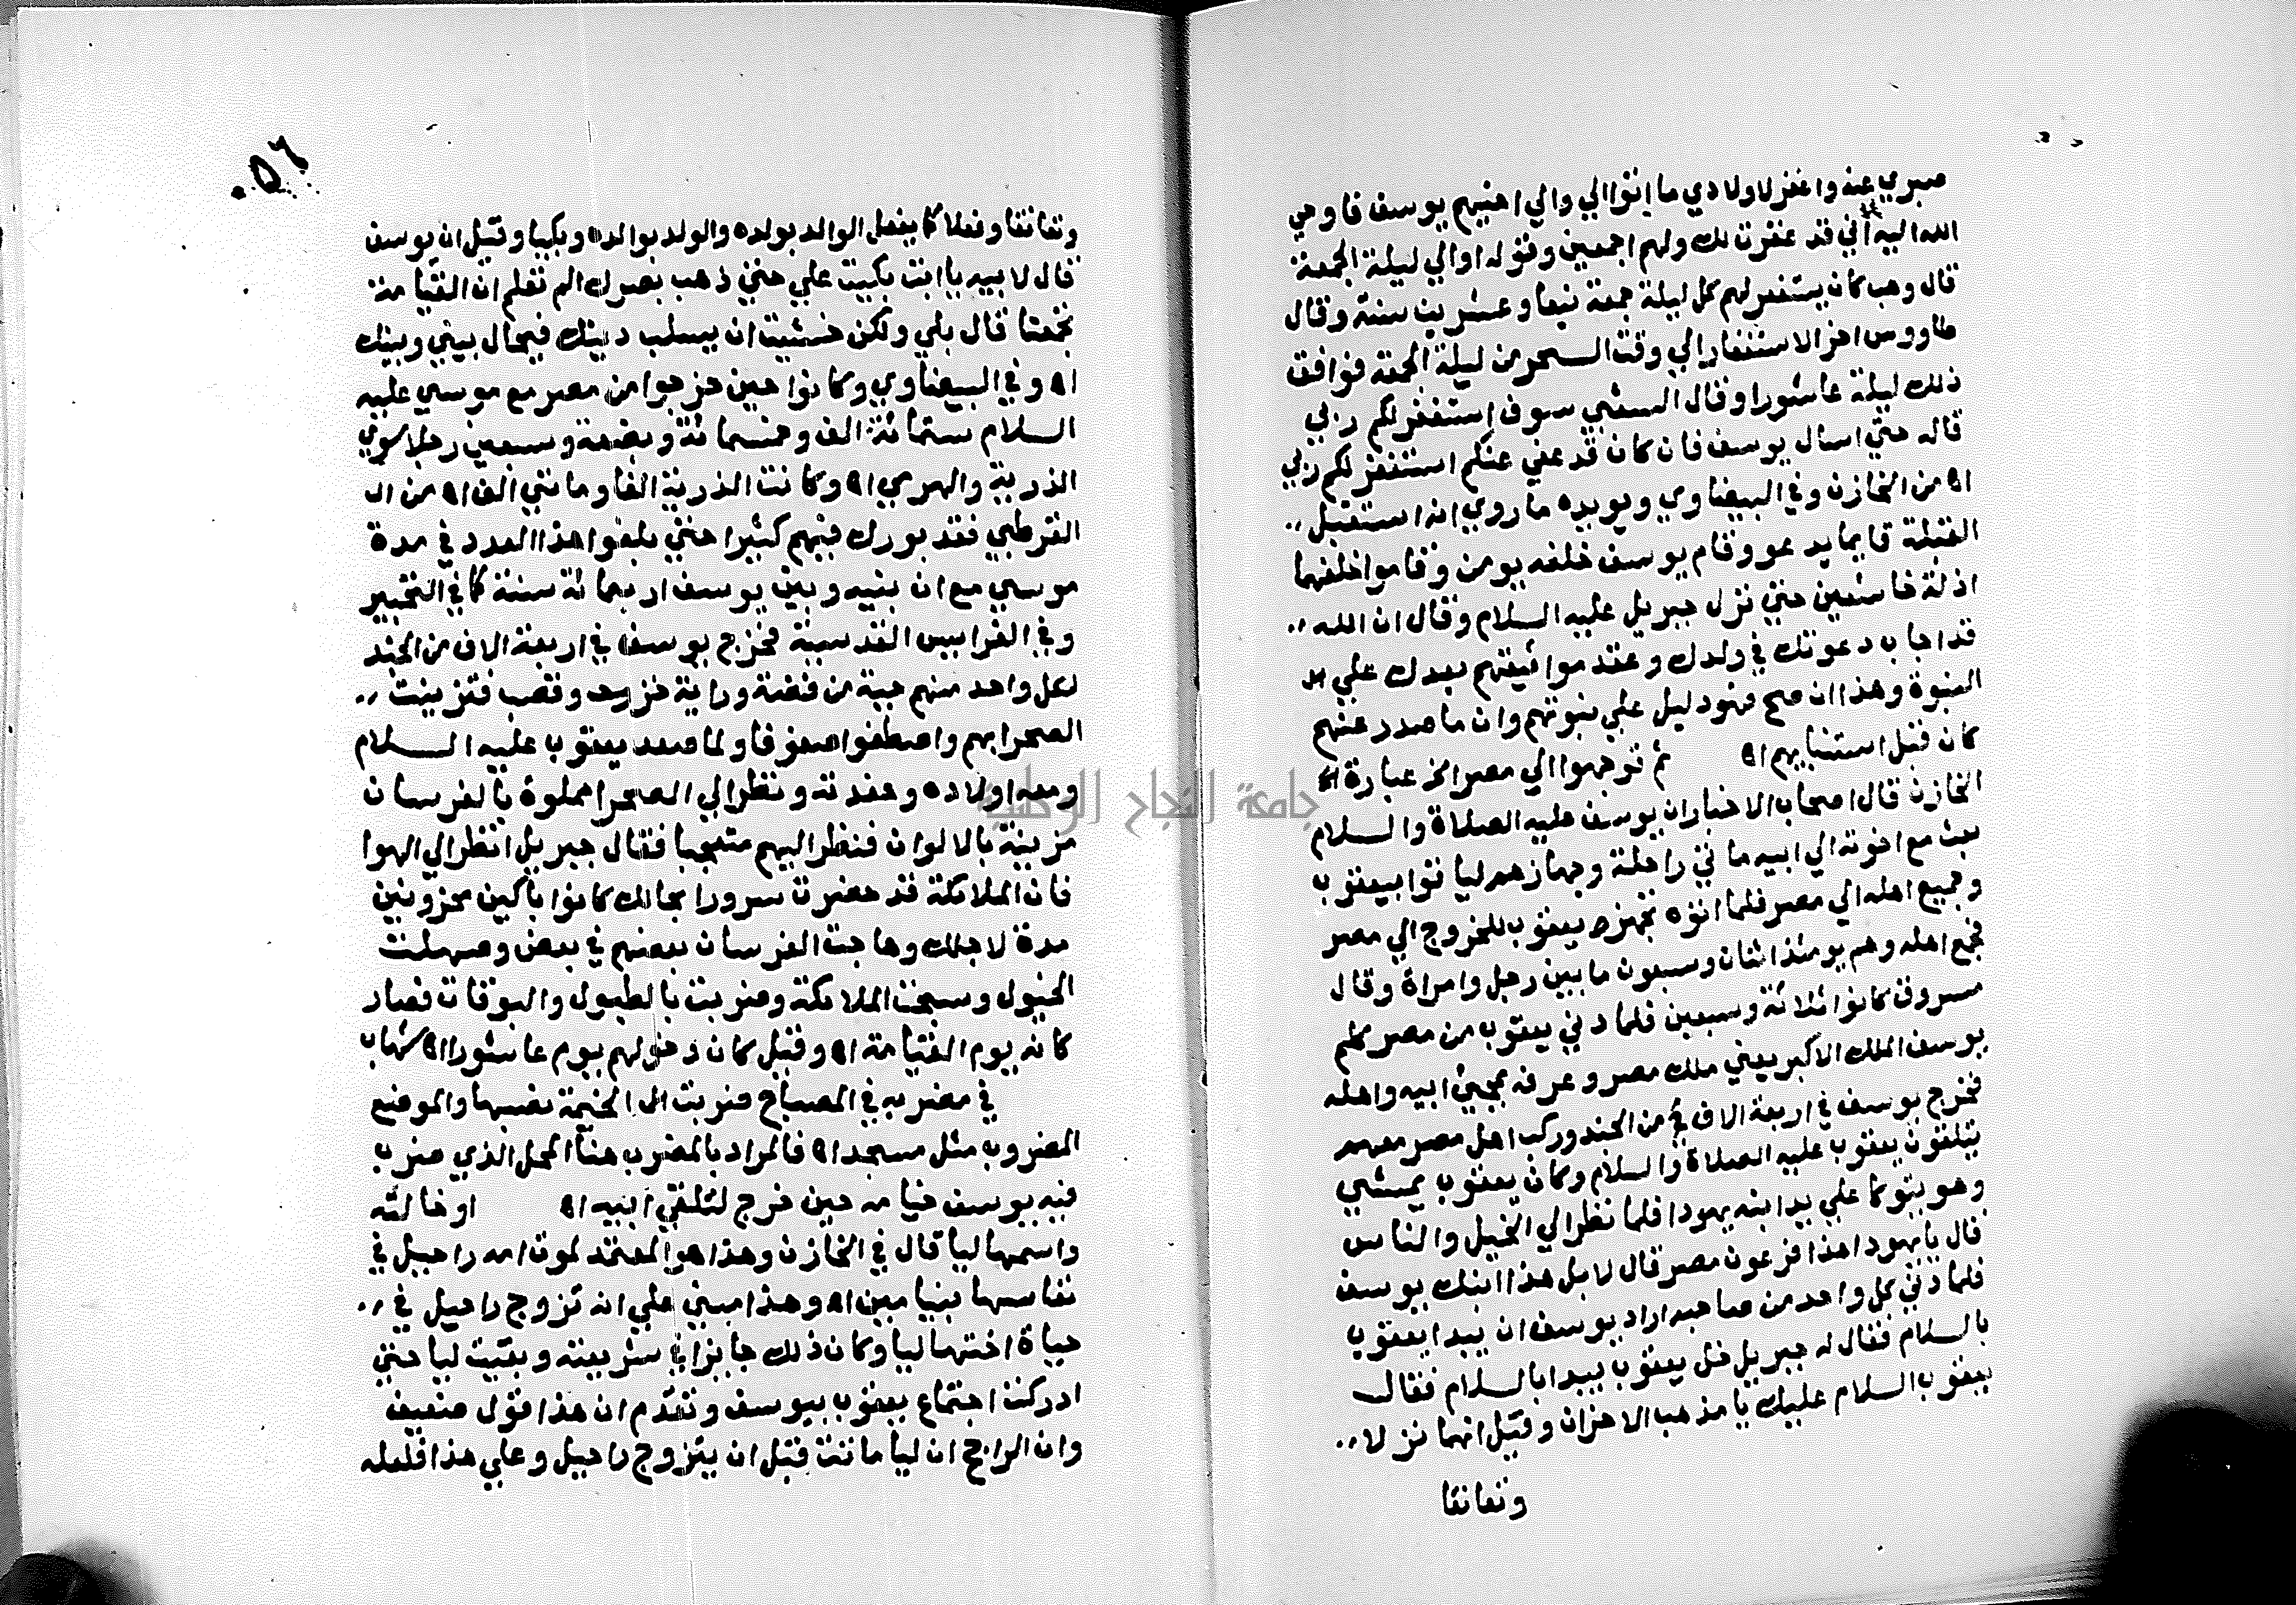 صبري عنه واغفر لاولادي ما اتوا الي والي اخيهم يوسف فاوحي
الله اليه اني قد غفرت لك ولهم اجمعين وقوله او الي ليلة الجمعة
قال وهب كان يستغفر لهم كل ليلة جمعة نيفا وعشرين سنة وقال
طاووس اخر الاستغفار الي وقت السحر من ليلة الجمعة فوافق
ذلك ليلة عاشورا وقال الشعبي سوف استغفر لكم ربي
قاله حتي اسال يوسف فان كان قد عفي عنكم استغفر لكم ربي
اه من الخازن وفي البيضاوي ويويده ما روي انه استقبل
القبلة قايما يدعو وقام يوسف خلفه يومن وقاموا خلفهما
اذلة خاشعين حتي نزل جبريل عليه السلام وقال ان الله
قد اجاب دعوتك في ولدك وعقد مواثيقهم بعدك علي
النبوة وهذا ان صح فهو دليل علي نبوتهم وان ما صدر عنهم
كان قبل استنبايهم اه ثم توجهوا الي مصر الخ عبارة
الخازن قال اصحاب الاخبار ان يوسف عليه الصلاة والسلام
بعث مع اخوته الي ابيه مائتي راحلة وجهازهم لياتوا بيعقوب
وجميع اهله الي مصر فلما اتوه تجهز يعقوب للخروج الي مصر
فجمع اهله وهم يومئذ اثنان وسبعون ما بين رجل وامراة وقال
مسروق كانوا ثلاثة وسبعين فلما دني يعقوب من مصر كلم
يوسف الملك الاكبر يعني ملك مصر وعرفه بمجيئ ابيه واهله
فخرج يوسف في اربعة الاف من الجند وركب اهل مصر معهم
يتلقون يعقوب عليه الصلاة والسلام وكان يعقوب يمشي
وهو يتوكا علي يد ابنه يهودا فلما نظر الي الخيل والناس
قال يا يهودا هذا فرعون مصر قال لا بل هذا ابنك يوسف
فلما دني كل واحد من صاحبه اراد يوسف ان يبدا يعقوب
بالسلام فقال له جبريل خل يعقوب يبدا بالسلام فقال
يعقوب السلام عليك يا مذهب الاحزان وقيل انهما نزلا
وتعانقا
٥٦
وتعانقا وفعلا كما يفعل الوالد بولده والولد بوالده وبكيا وقيل ان يوسف
قال لابيه يا ابت بكيت علي حتي ذهب بصرك الم تعلم ان القيامة
تجمعنا قال بلي ولكن خشيت ان يسلب دينك فيحال بيني وبينك
اه وفي البيضاوي وكانوا حين خرجوا من مصر مع موسي عليه
السلام ستمائة الف وخمسمائة وبضعة وسبعين رجلا سوي
الذرية والهرمي اه وكانت الذرية الفا ومائتي الف اه من
القرطبي فقد بورك فيهم كثيرا حتي بلغوا هذا العدد في مدة
موسي مع ان بنيه وبين يوسف اربعمائة سنة كما في التحبير
وفي العرايس القدسية فخرج يوسف في اربعة الاف من الجند
لكل واحد منهم جبة من فضة وراية خز وقصب فتزينت
الصحرا بهم واصطفوا صفوفا ولما صعد يعقوب عليه السلام
ومعه اولاده وحفدته ونظر الي الصحرا مملوة بالفرسان
مزينة بالالوان فنظر اليهم متعجبا فقال جبريل انظر الي الهوا
فان الملائكة قد حضرت سرورا بحالك كانوا باكين محزونين
مدة لاجلك وهاجت الفرسان بعضهم في بعض وصهلت
الخيول وسبحت الملائكة وضربت بالطبول والبوقات فصار
كانه يوم القيامة اه وقيل كان دخولهم يوم عاشورا اه شهاب
في مضربه في المصباح ضربت الخيمة نصبها والموضع
المضروب مثل مسجد اه فالمراد بالمضرب هنا المحل الذي ضرب
فيه يوسف خيامه حين خرج لتلقي ابيه اه او خالته
واسمها ليا قال في الخازن وهذا هو المعتمد لموت امه راحيل في
نفاسها بنيامين اه وهذا مبني علي انه تزوج راحيل في
حياة اختها ليا وكان ذلك جايزا في شريعته وبقيت ليا حتي
ادركت اجتماع يعقوب بيوسف وتقدم ان هذا قول ضعيف
وان الراجح ان ليا ماتت قبل ان يتزوج راحيل وعلي هذا فلعله
جامعة النجاح الوطنية